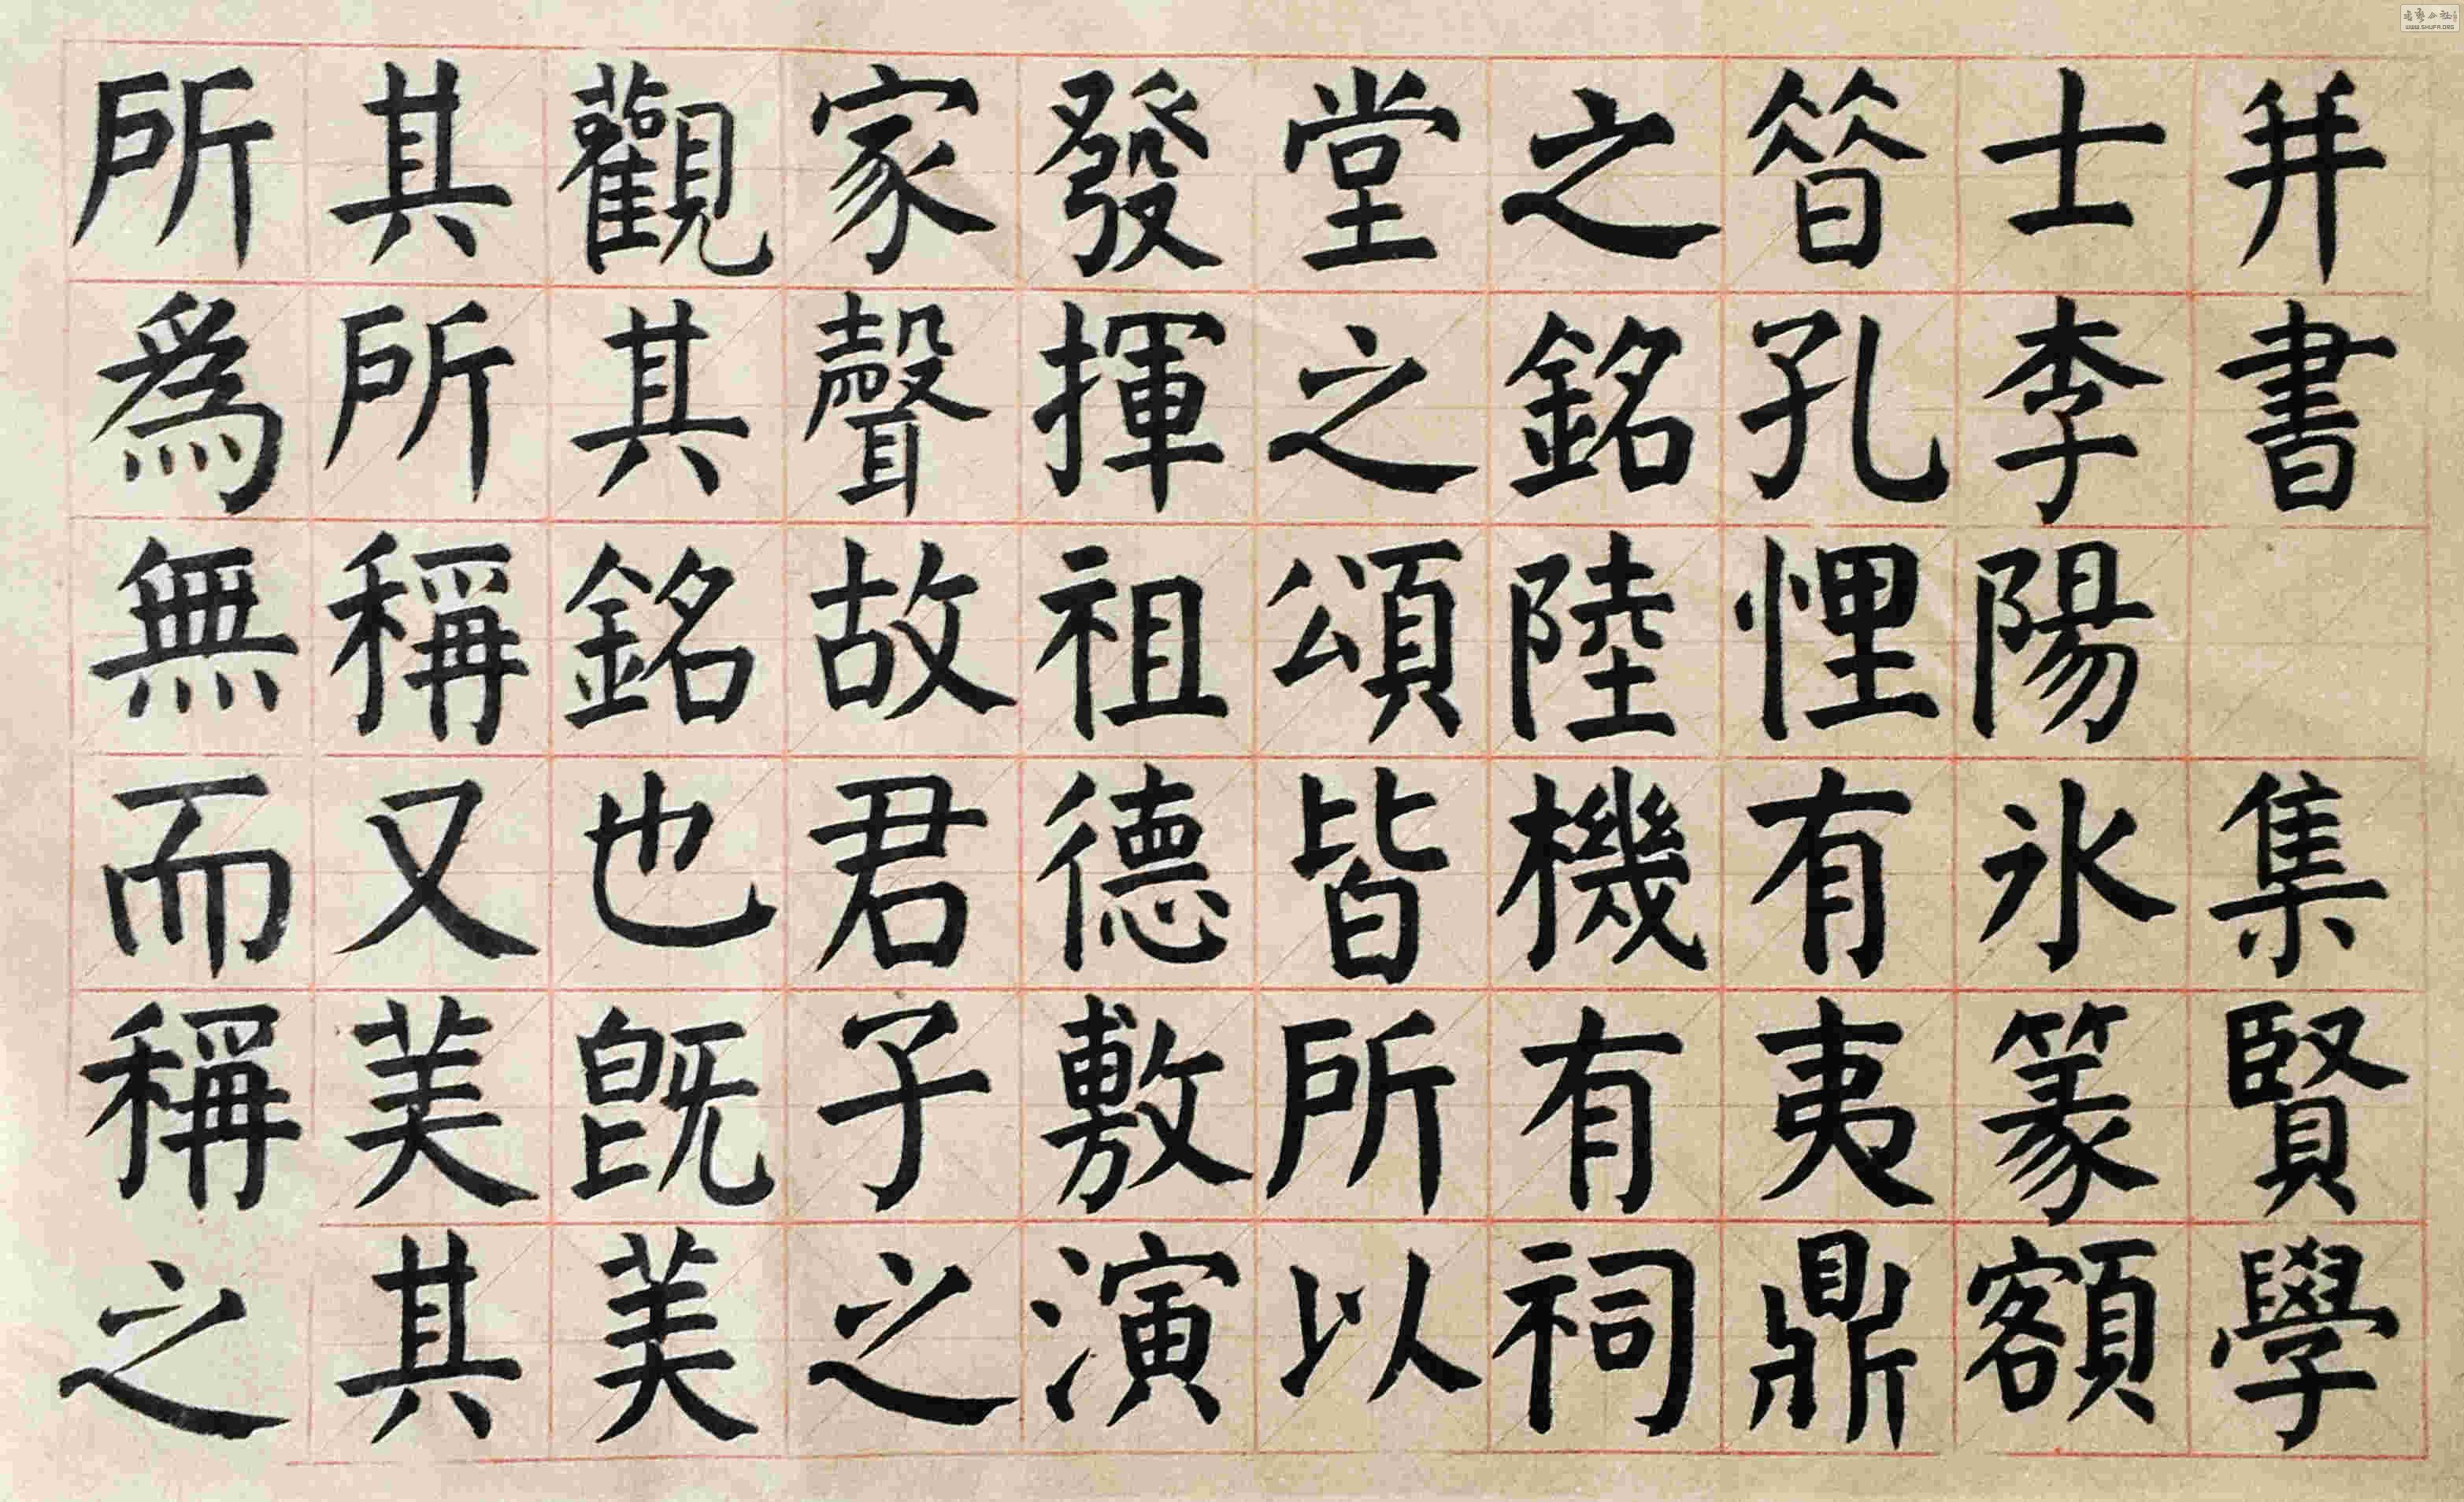 幷書 集賢學
士李陽氷篆額
昔孔悝有夷鼎
之銘陸機有祠
堂之頌皆所以
發揮祖德敷演
家聲故君子之
觀其銘也旣美
其所稱又美其
所爲無而稱之
WWW.SHUFA.ORG